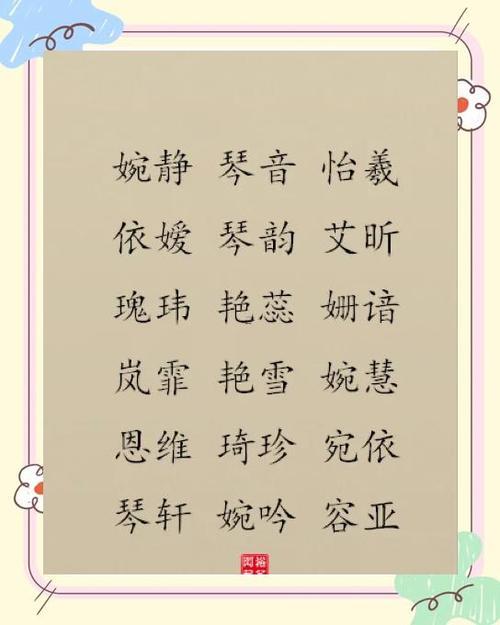 婉静 琴音 怡羲
依嫒 琴韵 艾昕
瑰玮 艳蕊 姗谙
岚霏 艳雪 婉慧
恩维 琦珍 宛依
琴轩 婉吟 容亚